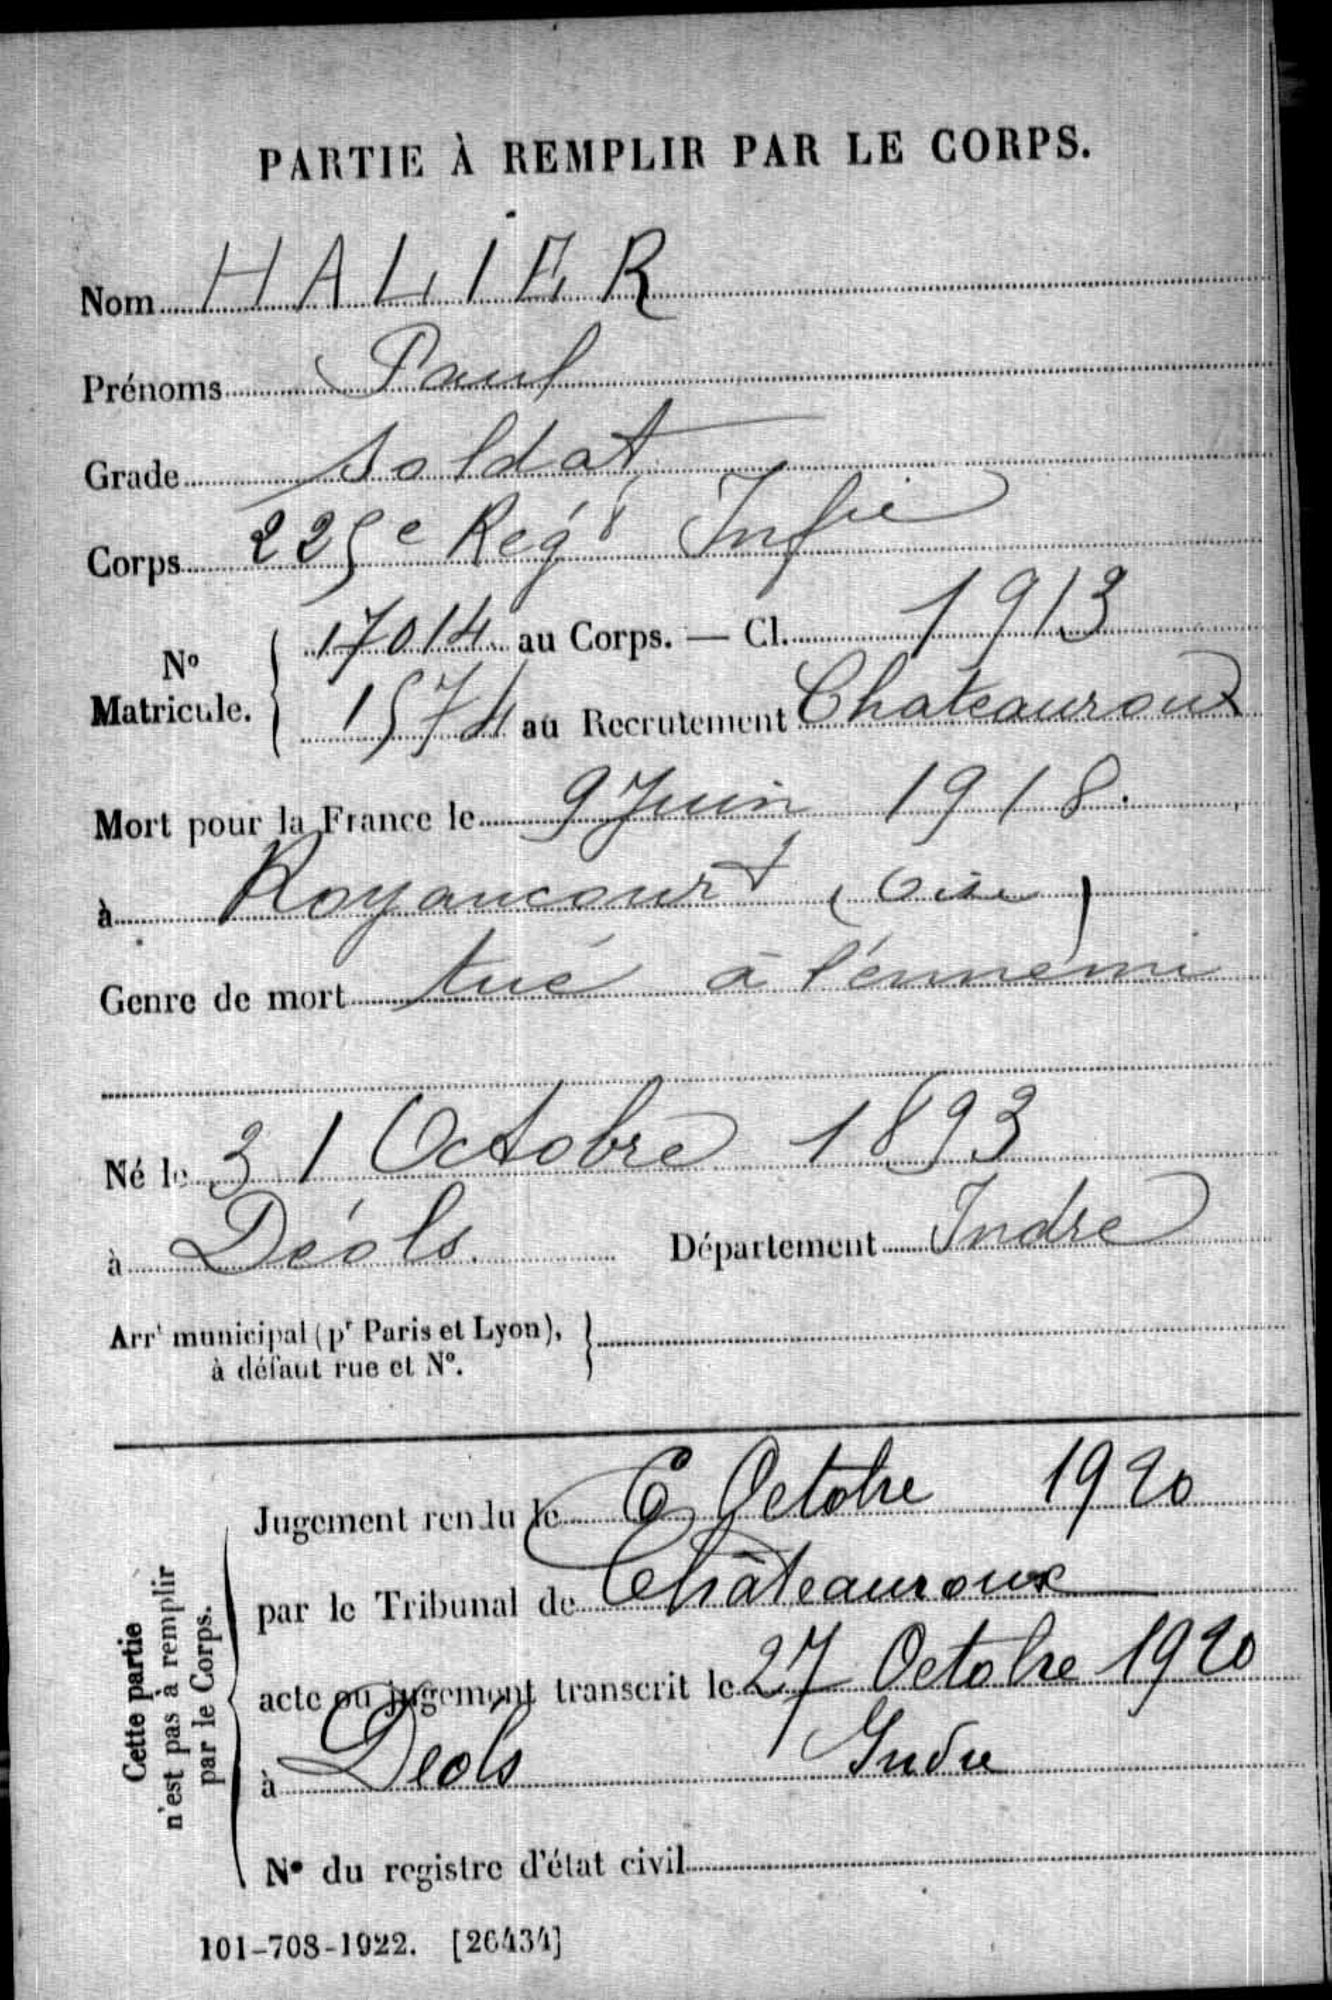 PARTIE À REMPLIR PAR LE CORPS.
Nom HALIER
Prénoms Paul
Grade soldat
Corps 225e Régt Infie
No Matricule. { 17014 au Corps. — Cl. 1913
1574 au Recrutement Chateauroux
Mort pour la France le 9 Juin 1918.
à Royaucourt (Oise)
Genre de mort tué à l'énnemi
Né le 31 Octobre 1893
à Déols. Département Indre
Arrt municipal (pr Paris et Lyon), }
à défaut rue et No.
Cette partie n'est pas à remplir par le Corps.
Jugement rendu le 6 Octobre 1920
par le Tribunal de Châteauroux
acte ou jugement transcrit le 27 Octobre 1920
à Déols Indre
No du registre d'état civil
101-708-1922. [26434]